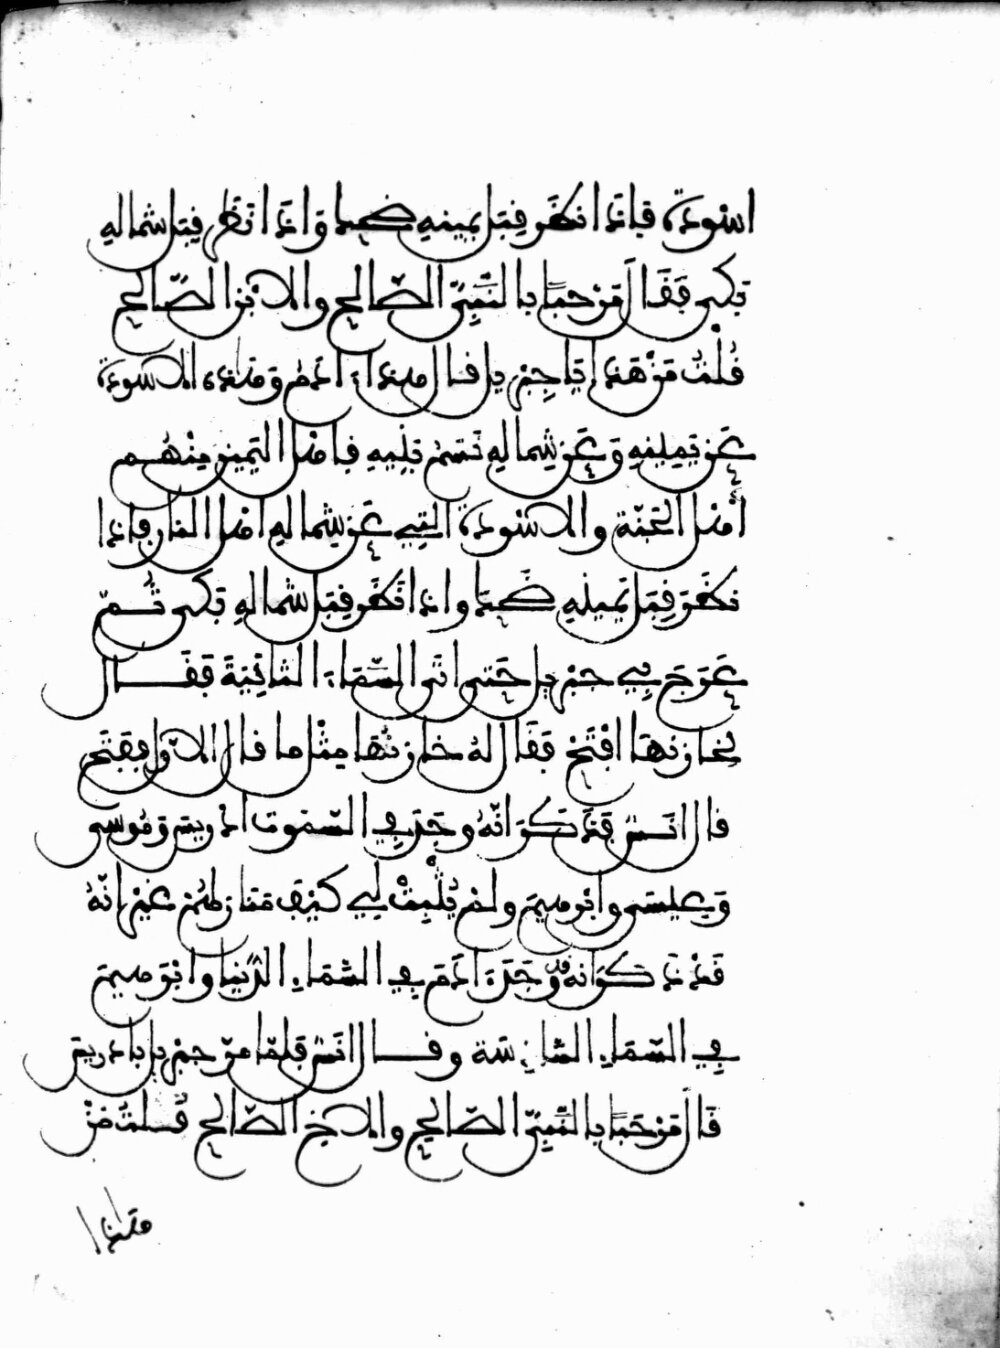 اسْوِدَة، فإذا نظَر قِبَل يمينهِ ضحك وَإذا نَظَر قِبَل شماله
بَكى فَقَال مَرْحبًا بالنَّبِىّ الصّالح والابْن الصّالح
قُلْتُ مَنْ هَذا يَا جِبْريل قال هذا ءَادَمُ وهَذه الاسودة
عَن يَمِينِهِ وَعَن شِمالهِ نَسَمُ بَنِيهِ فأهل اليَمين مِنْهُم
أهل الجَنّة والاسْودَة التِي عَن شِمالهِ اهل النار فإذا
نظَرَ قِبَل يَمينهِ ضَحِكَ وإذا نَظَر قِبَل شمالهِ بَكى ثُمّ
عَرَجَ بِي جبْريل حَتى اتَى السَّمَاءَ الثّانِيَةَ فَقَال
لخازنهَا افْتَحْ فَقَال لهُ خازنُهَا مِثْل ما قال الاوّل فَفَتَح
قال انَسٌ فَذَكَرَ انّهُ وجَدَ فِي السّموَت ادريسَ وَمُوسَى
وَعِيسَى وابْرهيمَ ولمْ يُثْبِتْ لِي كَيْفَ مَنازلهُمْ غيْر انّهُ
قَدْ ذَكَرَ انّهُ قد وجَدَ ءَادَمَ فِي السّمَاءِ الدُّنيا وابْرَهيمَ
فِي السّمَاءِ السّادِسَة وقال انَسٌ فَلَمّا مَرّ جبْريل بإدريسَ
قَال مَرْحَبًا بالنَّبِىّ الصّالح والاخِ الصّالح قُلتُ مَنْ
هَذا